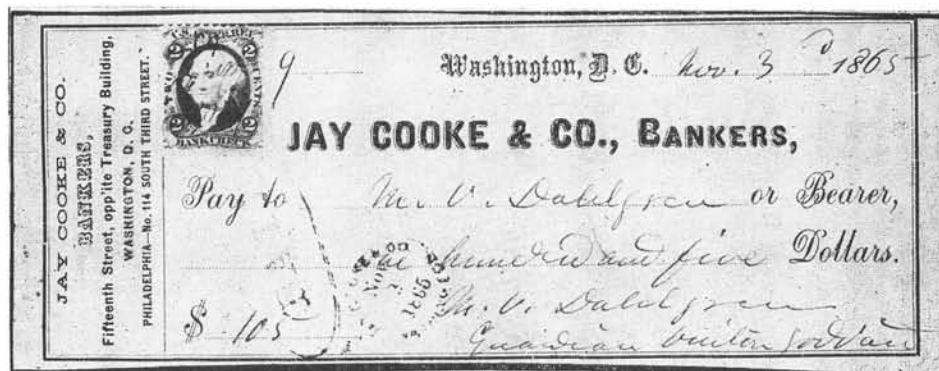 JAY COOKE & CO.
BANKERS,
Fifteenth Street, opp'ite Treasury Building,
WASHINGTON, D. C.
PHILADELPHIA—No. 114 SOUTH THIRD STREET.
U.S. INTER. REV.
2 2
BANK CHECK
9 Washington, D. C. Nov. 3d 1865
JAY COOKE & CO., BANKERS,
Pay to M. V. Dahlgren or Bearer,
One hundred and five Dollars.
$ 105
NOV
1865
M. V. Dahlgren
Guardian Vinton Goddard